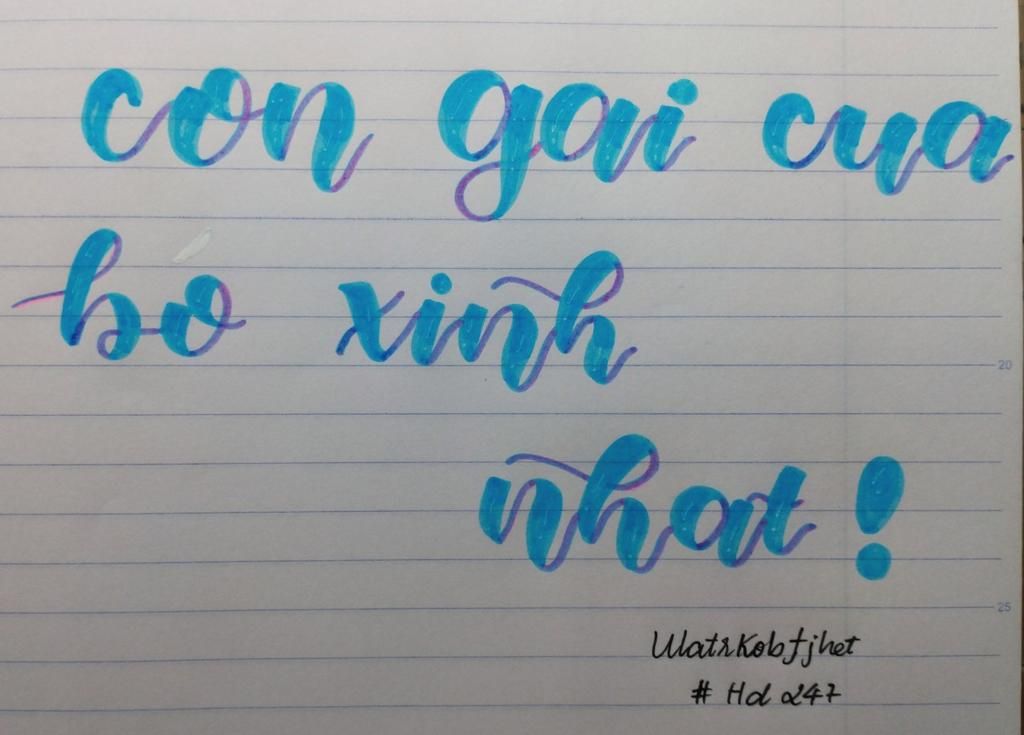 con gai cua
bo xinh
nhat !
20
25
WatrKobfjhet
# Hd 247